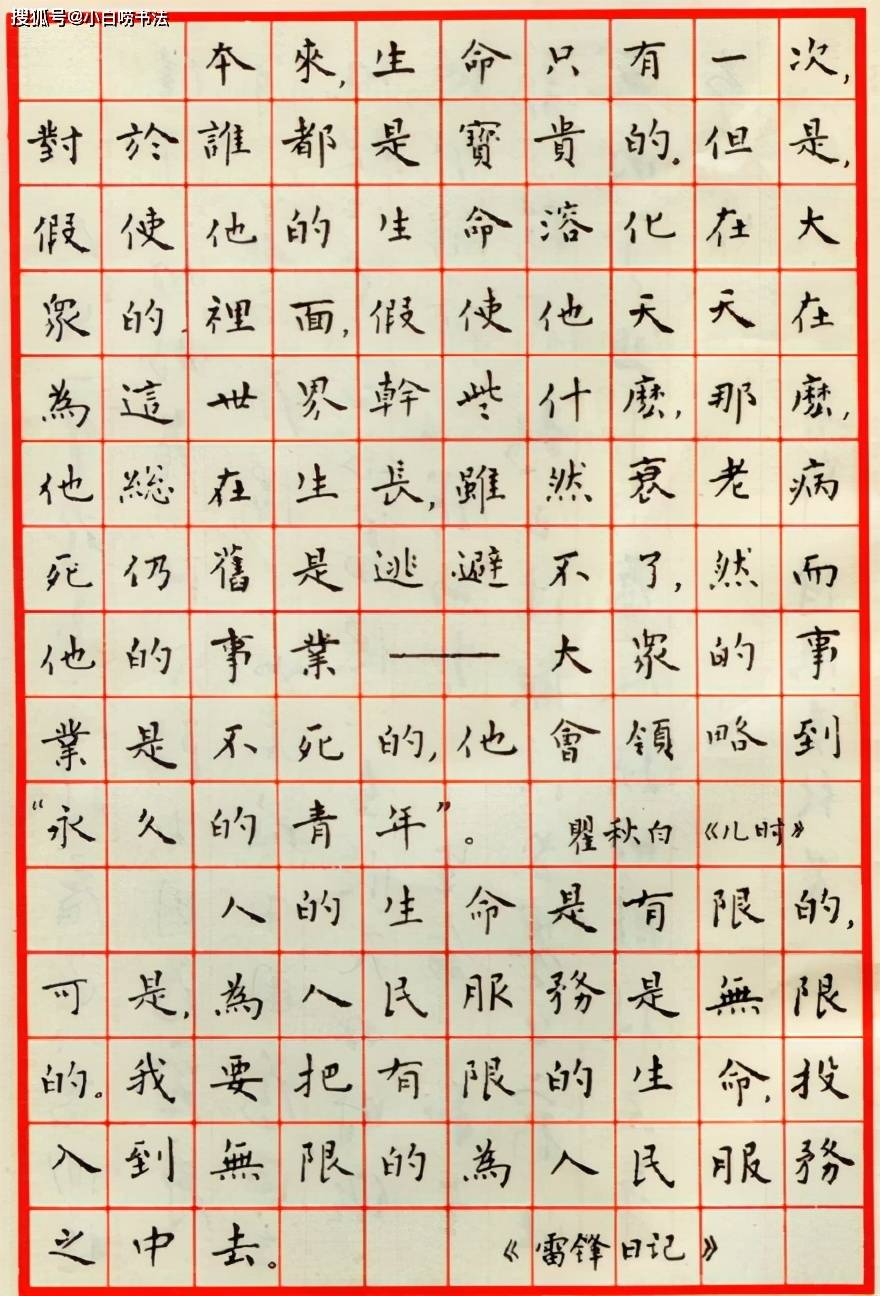 搜狐号@小白唠书法
本來,生命只有一次,
對於誰都是寶貴的。但是,
假使他的生命溶化在大
眾的裡面,假使他天天在
為這世界幹些什麼,那麼,
他總在生長,雖然衰老病
死仍舊是逃避不了,然而
他的事業——大眾的事
業是不死的,他會領略到
“永久的青年”。 瞿秋白《儿时》
人的生命是有限的,
可是,為人民服務是無限
的。我要把有限的生命,投
入到無限的為人民服務
之中去。 《雷锋日记》